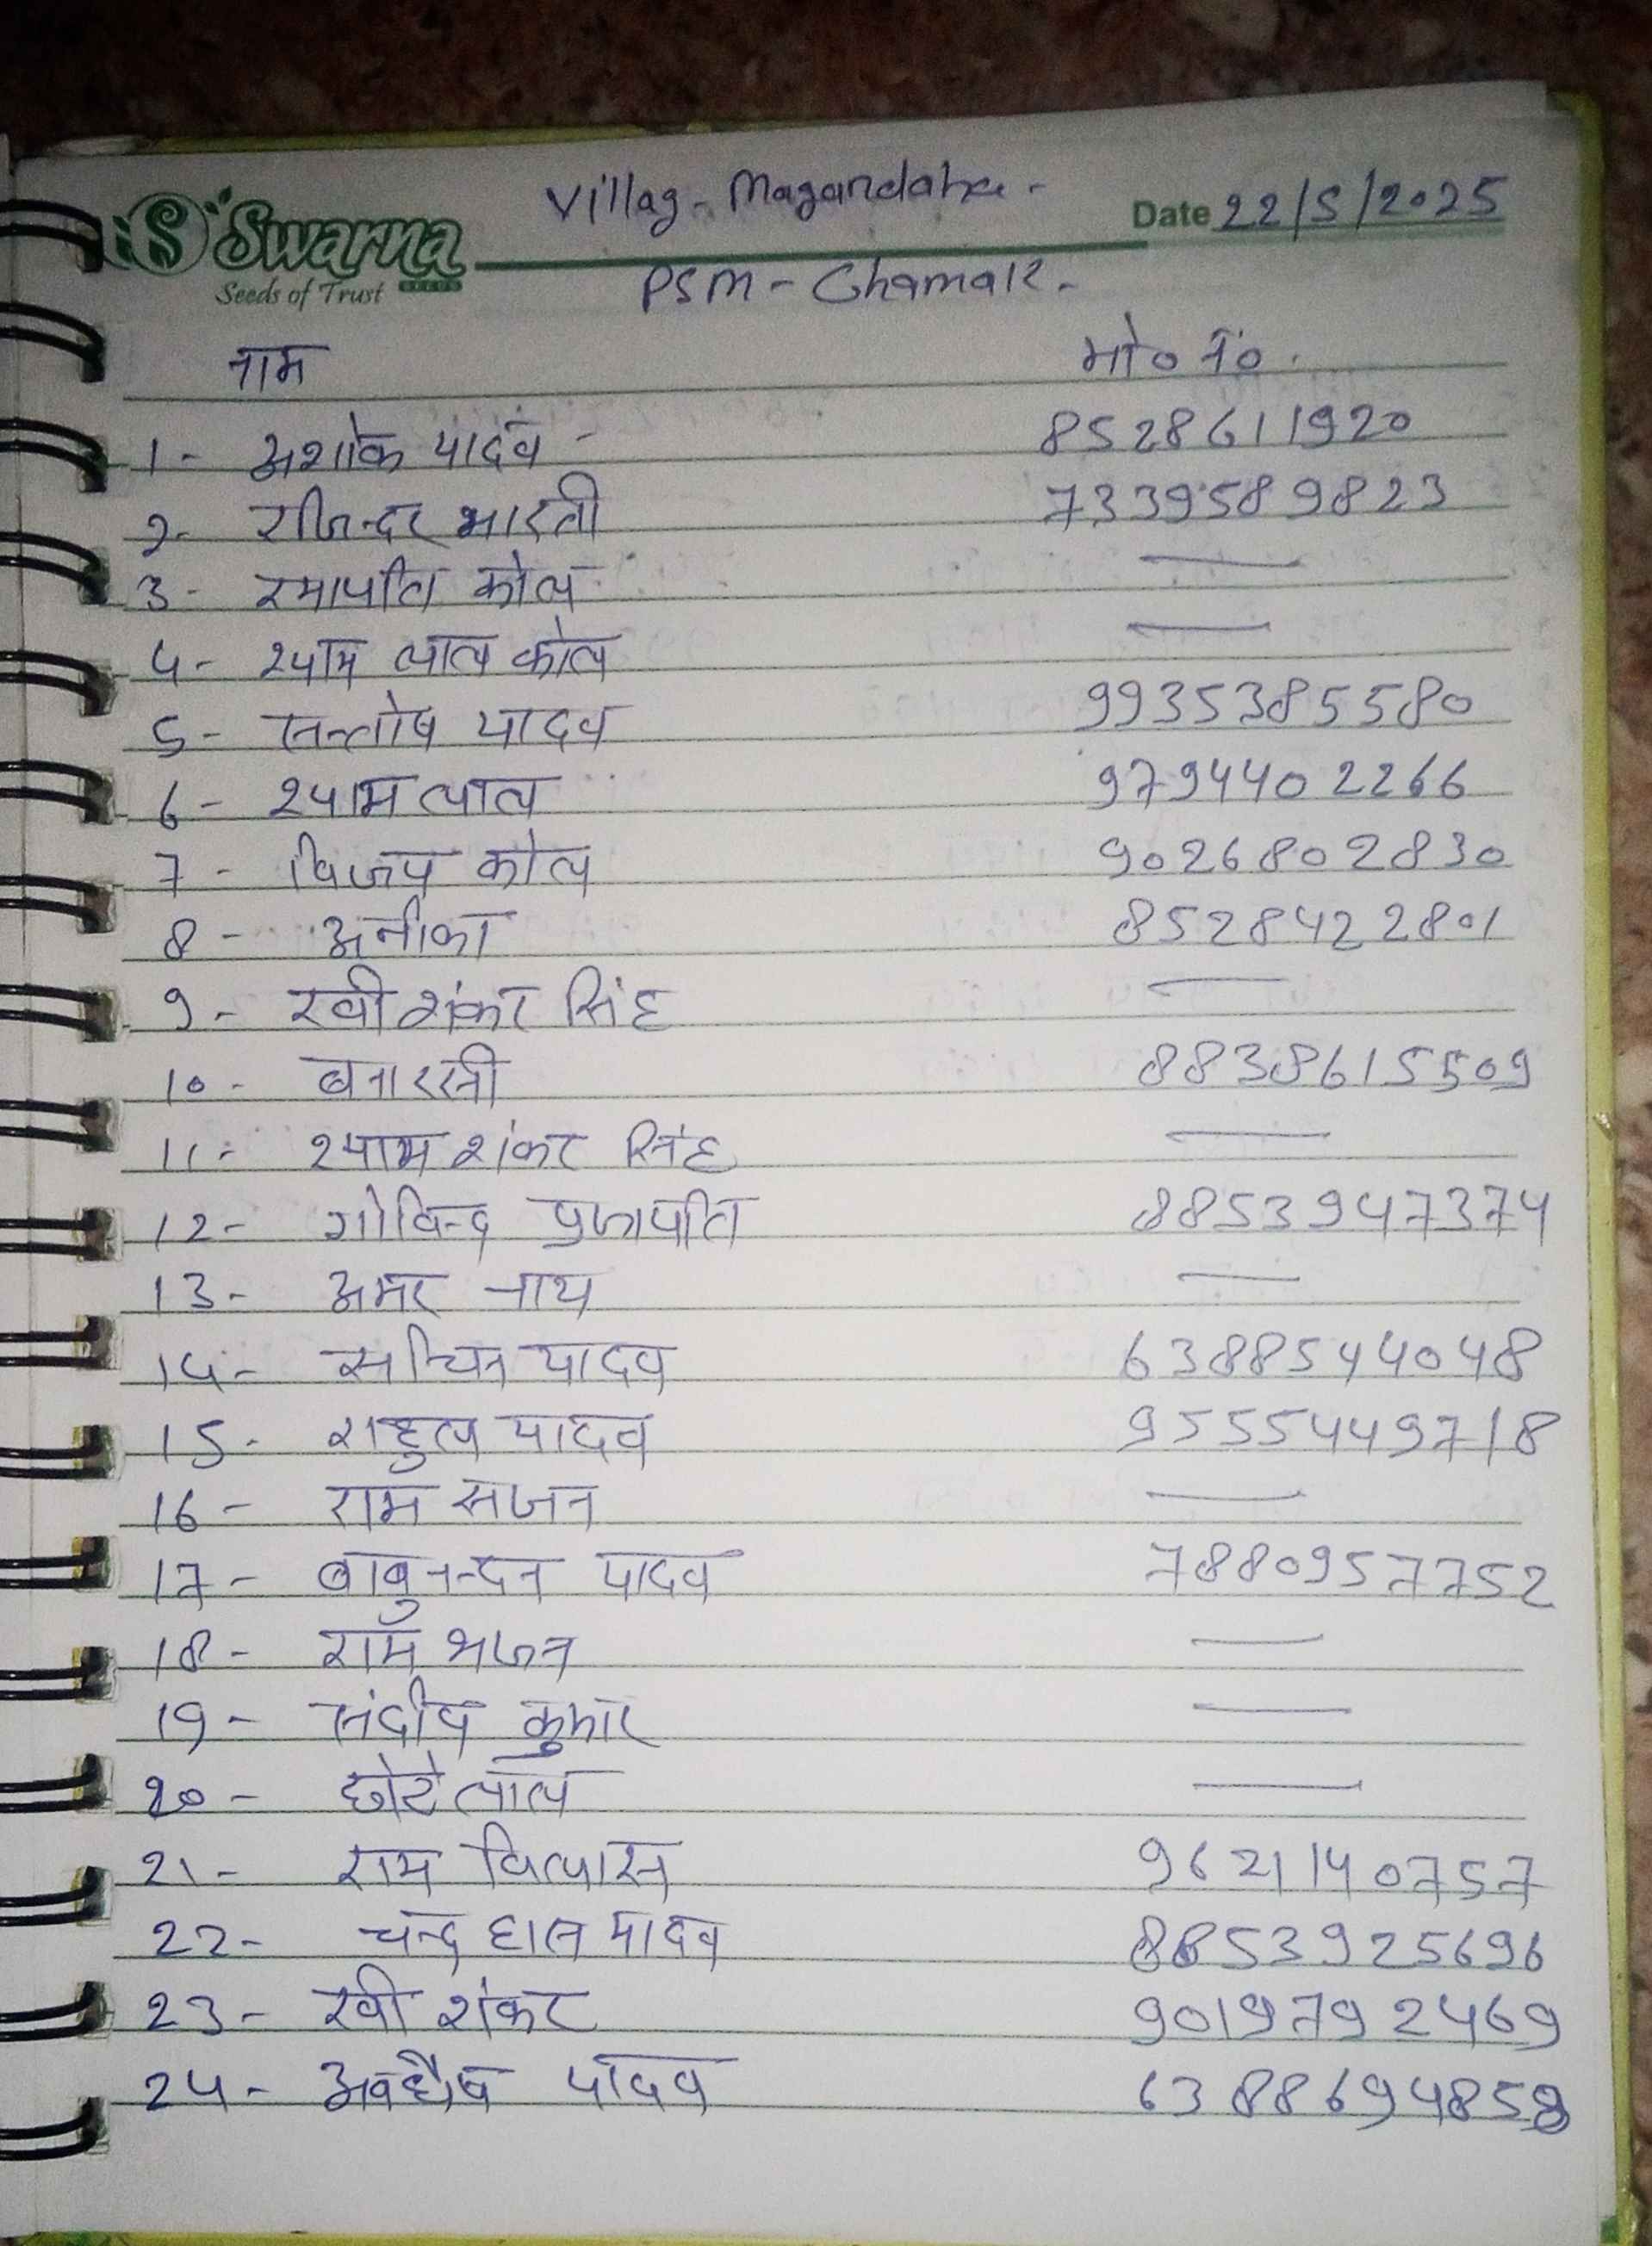 Swarna
SEEDS
Seeds of Trust
Villag - Magandaha -
Date 22/5/2025
PSM - Chamak -
नाम मो० नं०
1- अशोक यादव - 8528611920
2- राजिन्दर भारती 7339589823
3- रमापति कोल —
4- श्याम लाल कोल —
5- सन्तोष यादव 9935385580
6- श्याम लाल 9794402266
7- विजय कोल 9026802830
8- अनीका 8528422801
9- रवी शंकर सिंह —
10- बनारसी 8838615509
11- श्याम शंकर सिंह —
12- गोविन्द प्रजापति 8853947374
13- अमर नाथ —
14- सचिन यादव 6388544048
15- राहुल यादव 9555449718
16- राम सजन —
17- बाबुनन्दन यादव 7880957752
18- राम भजन —
19- संदीप कुमार —
20- छोटे लाल —
21- राम विलास 9621140757
22- चन्द्र हास यादव 8853925696
23- रवी शंकर 9019792469
24- अवधेष यादव 6388694858